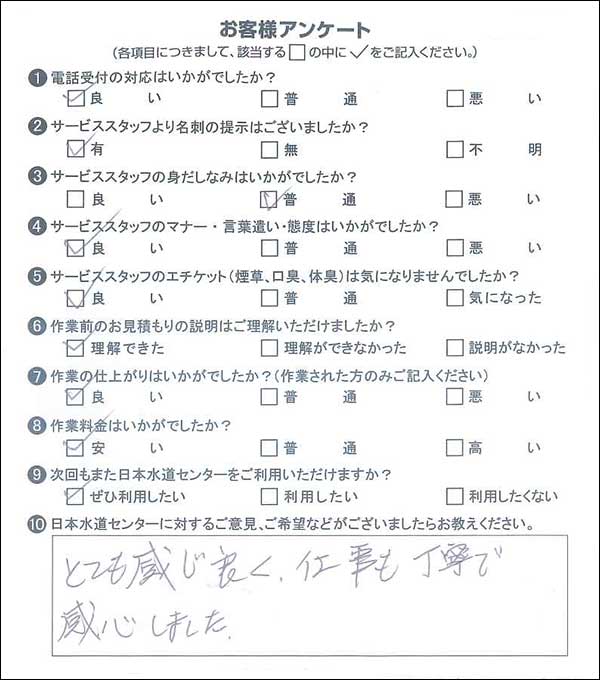 お客様アンケート
(各項目につきまして、該当する□の中に✓をご記入ください。)
❶電話受付の対応はいかがでしたか?
☑良い □普通 □悪い
❷サービススタッフより名刺の提示はございましたか?
☑有 □無 □不明
❸サービススタッフの身だしなみはいかがでしたか?
□良い ☑普通 □悪い
❹サービススタッフのマナー・言葉遣い・態度はいかがでしたか?
☑良い □普通 □悪い
❺サービススタッフのエチケット(煙草、口臭、体臭)は気になりませんでしたか?
☑良い □普通 □気になった
❻作業前のお見積もりの説明はご理解いただけましたか?
☑理解できた □理解ができなかった □説明がなかった
❼作業の仕上がりはいかがでしたか?(作業された方のみご記入ください)
☑良い □普通 □悪い
❽作業料金はいかがでしたか?
☑安い □普通 □高い
❾次回もまた日本水道センターをご利用いただけますか?
☑ぜひ利用したい □利用したい □利用したくない
❿日本水道センターに対するご意見、ご希望などがございましたらお教えください。
とても感じ良く、仕事も丁寧で
感心しました。